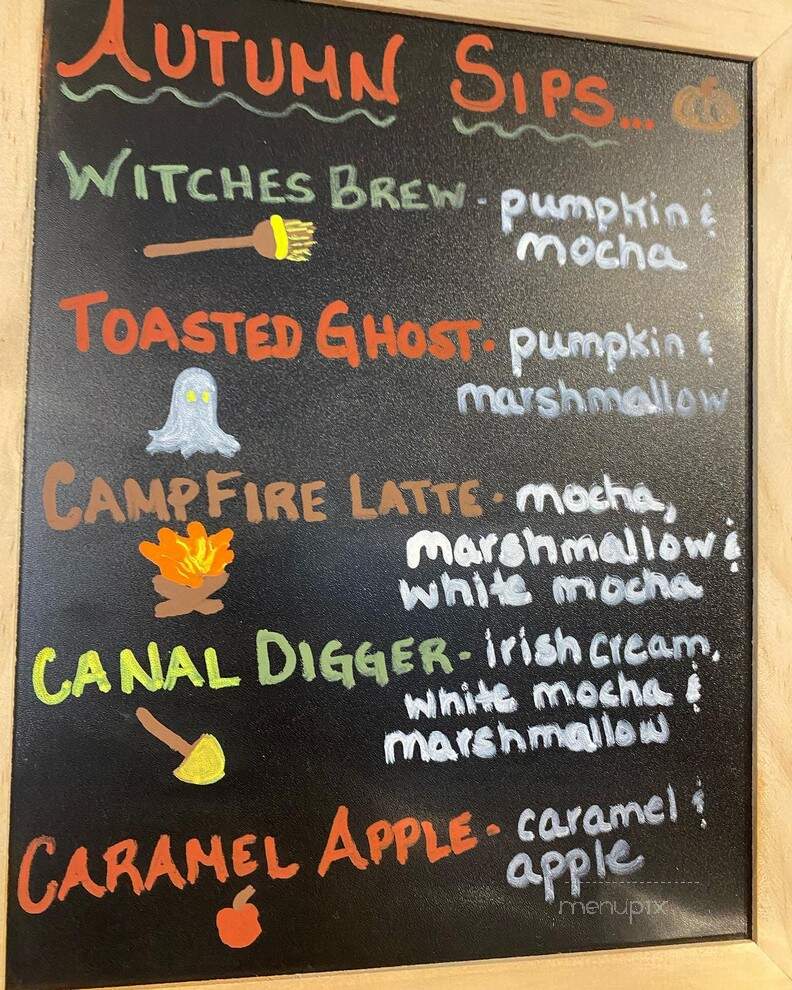 AUTUMN SIPS...
WITCHES BREW - pumpkin &
mocha
TOASTED GHOST - pumpkin &
marshmallow
CAMPFIRE LATTE - mocha,
marshmallow &
white mocha
CANAL DIGGER - irish cream,
white mocha &
marshmallow
CARAMEL APPLE - caramel &
apple
menupix